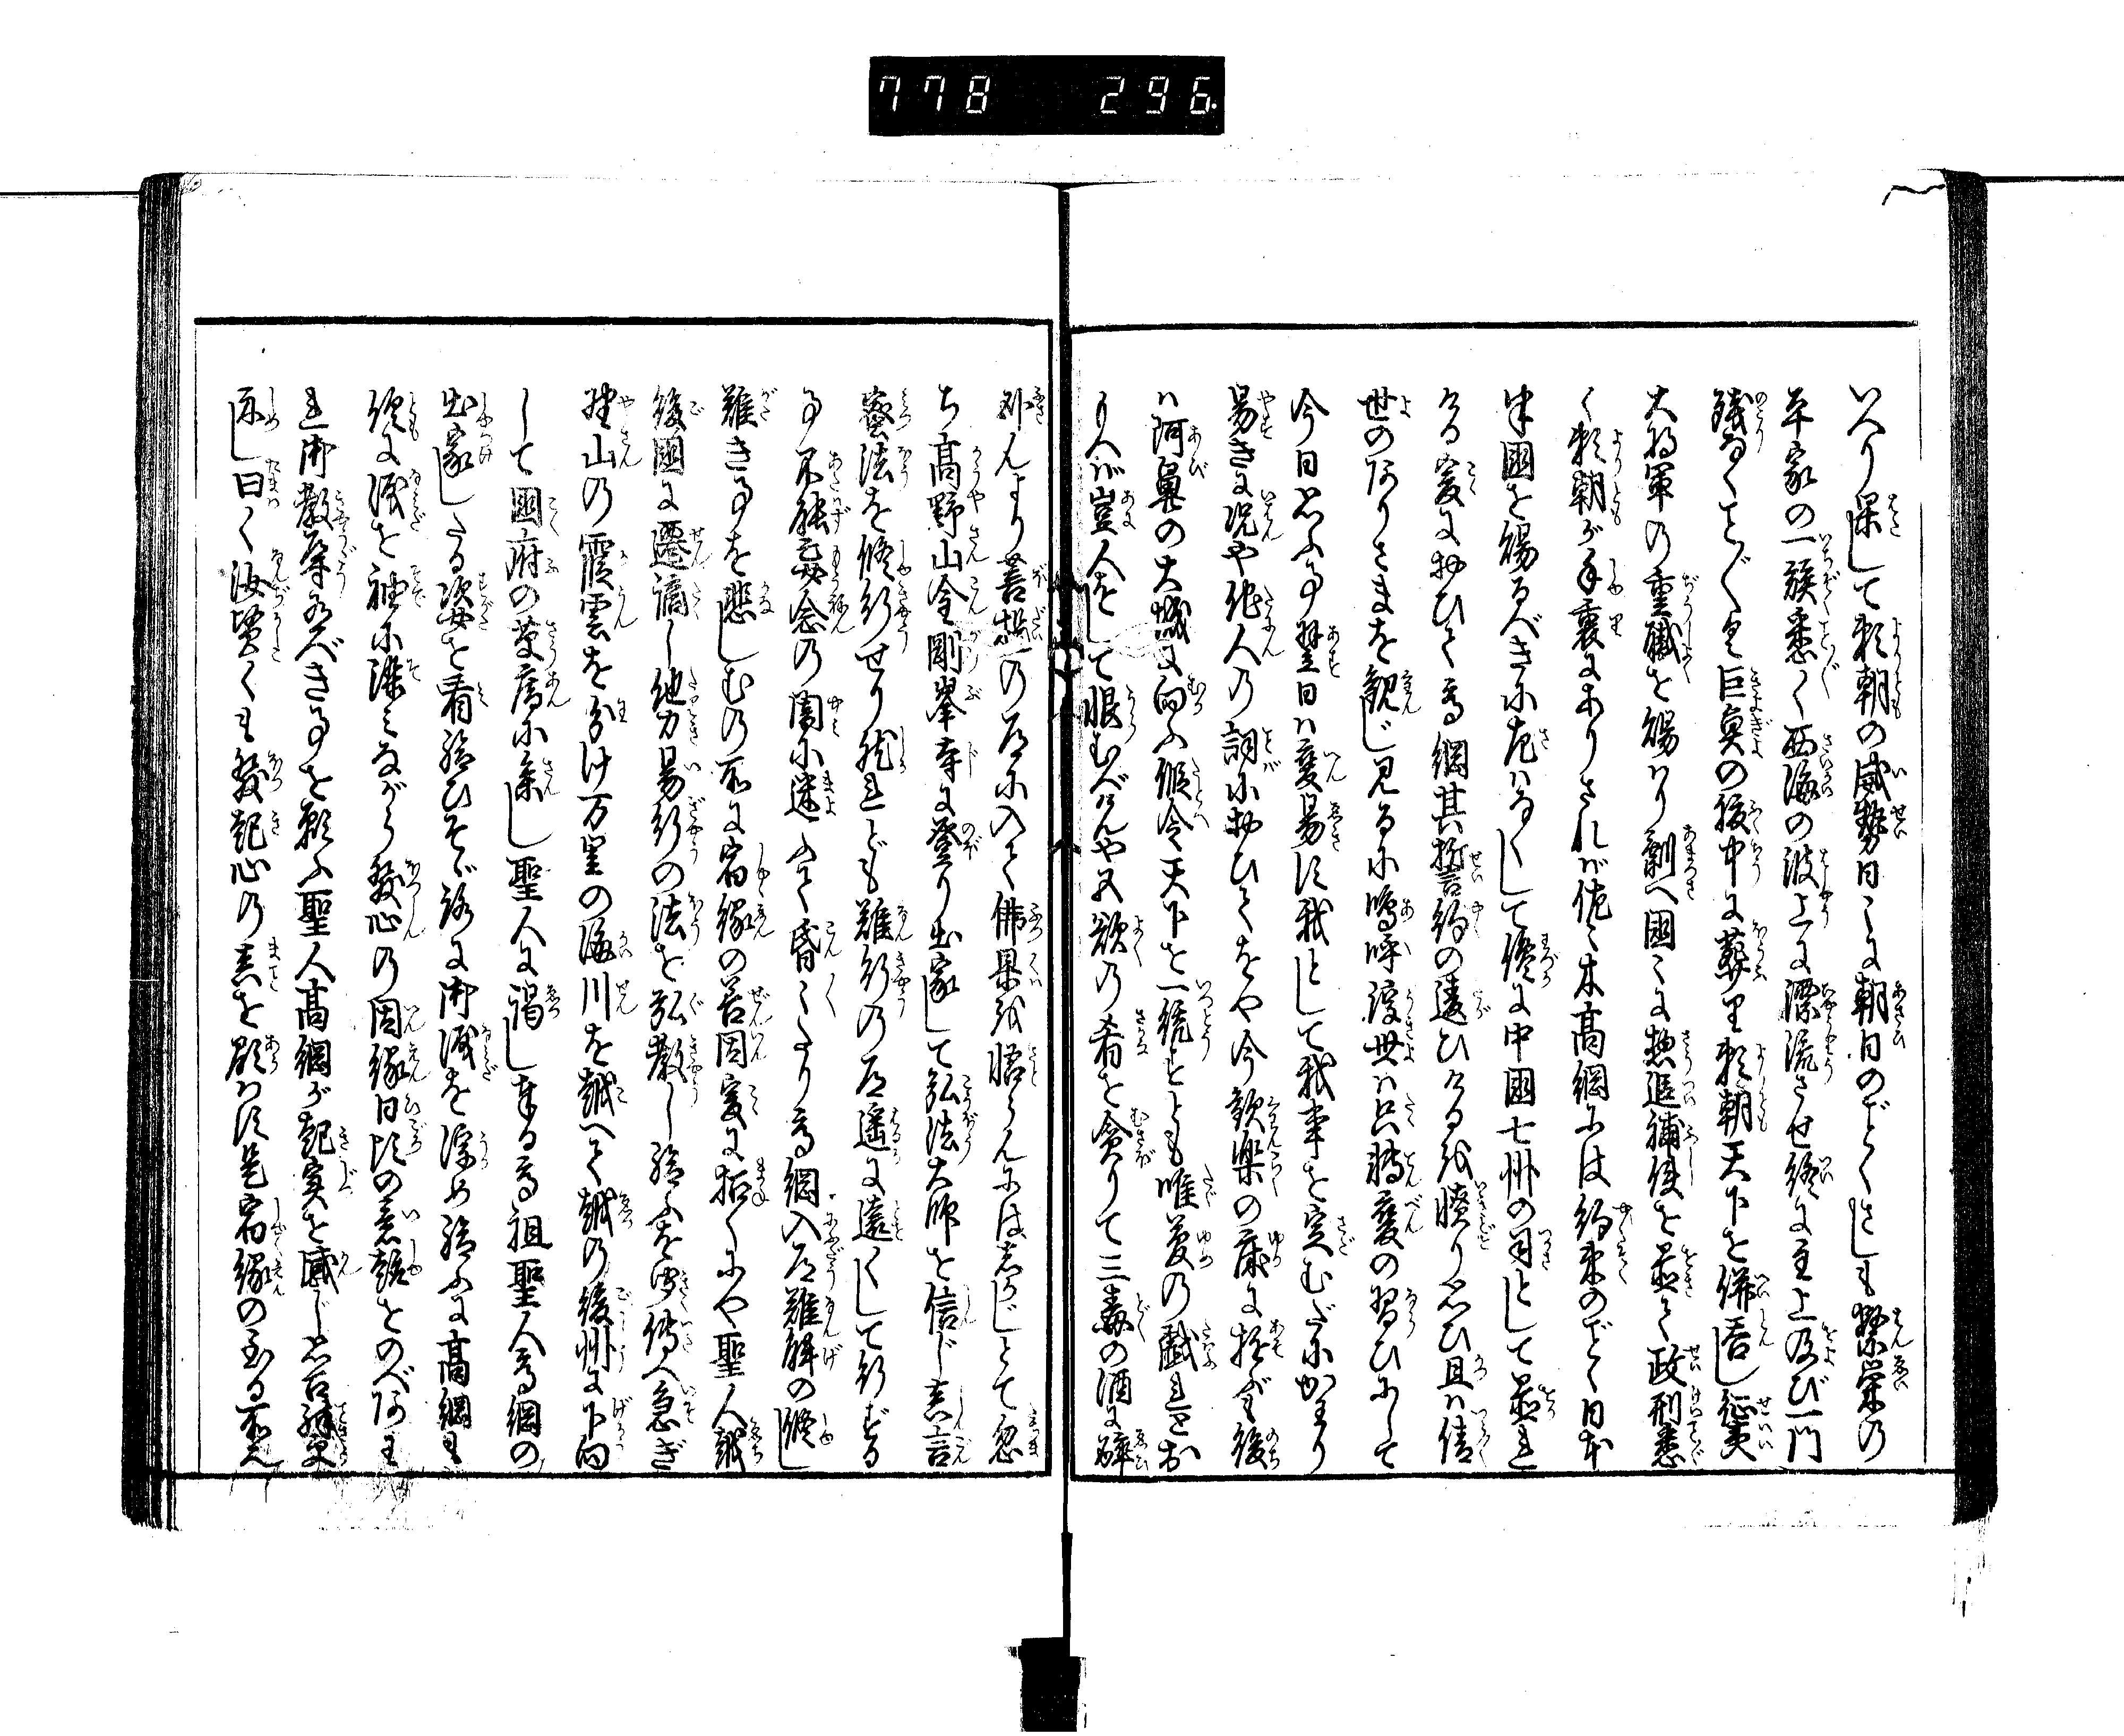 778 296
いへり果して頼朝の威勢日々に朝日のごとくさしも繁栄の
平家の一族悉く西海の波上に漂流させ終に主上及び一門
残なくこと〴〵く巨魚の腹中に葬り頼朝天下を併呑し征夷
大将軍の重職を賜はり剰へ国々に惣追捕使を置て政刑悉
く頼朝が手裏にありされば佐々木高綱には約束のごとく日本
半国を賜るべきに左はなくして纔に中国七州の司として置れ
ける爰に於ひて高綱其誓約の違ひけるを憤り思ひ且は倩
世のありさまを観じ見るに嗚呼浮世は只転変の習ひにして
今日思ふ事翌日は変易す我として我事を定むだにかはり
易きに況や他人の詞に於ひてをや今歓楽の床に遊ぶ共後
は阿鼻の大城に向ふ仮令天下を一統すとも唯夢の戯れとお
もへば豈人をして恨むべけんや五欲の肴を貪りて三毒の酒に酔
臥んより菩提の道に入て仏果を悟らんにはしかじとて忽
ち高野山金剛峯寺に登り出家して弘法大師を信じ真言
密法を修行せり然れども難行の道遥に遠くして行ずる
事不能妄念の闇に迷ふて昏々たり高綱入道難解の修し
難き事を悲しむの所に宿縁の善因爰に招くにや聖人越
後国に遷謫し他力易行の法を弘教し給ふを聞伝へ急ぎ
野山の霞雲を分け万里の海川を越へて越の後州に下向
して国府の草庵に参し聖人に謁し奉る高祖聖人高綱の
出家したる姿を看給ひそゞろに御涙を浮め給ふに高綱も
俱に涙を袖に湿みながら発心の因縁日頃の意趣をのべあは
れ御教導有べき事を願ふ聖人高綱が起実を感じ思召釋更
示し曰く汝賢くも発起心の真を顕はす是宿縁の至る所也